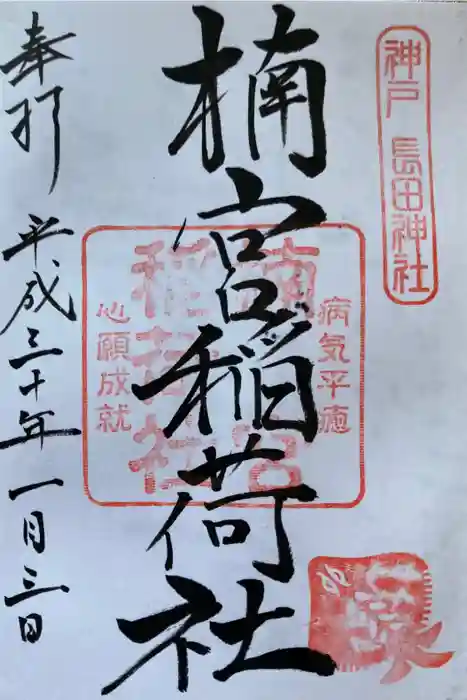 神戸 長田神社
病気平癒
楠宮稲荷社
楠宮稲荷社
心願成就
奉拝
平成三十年一月三日